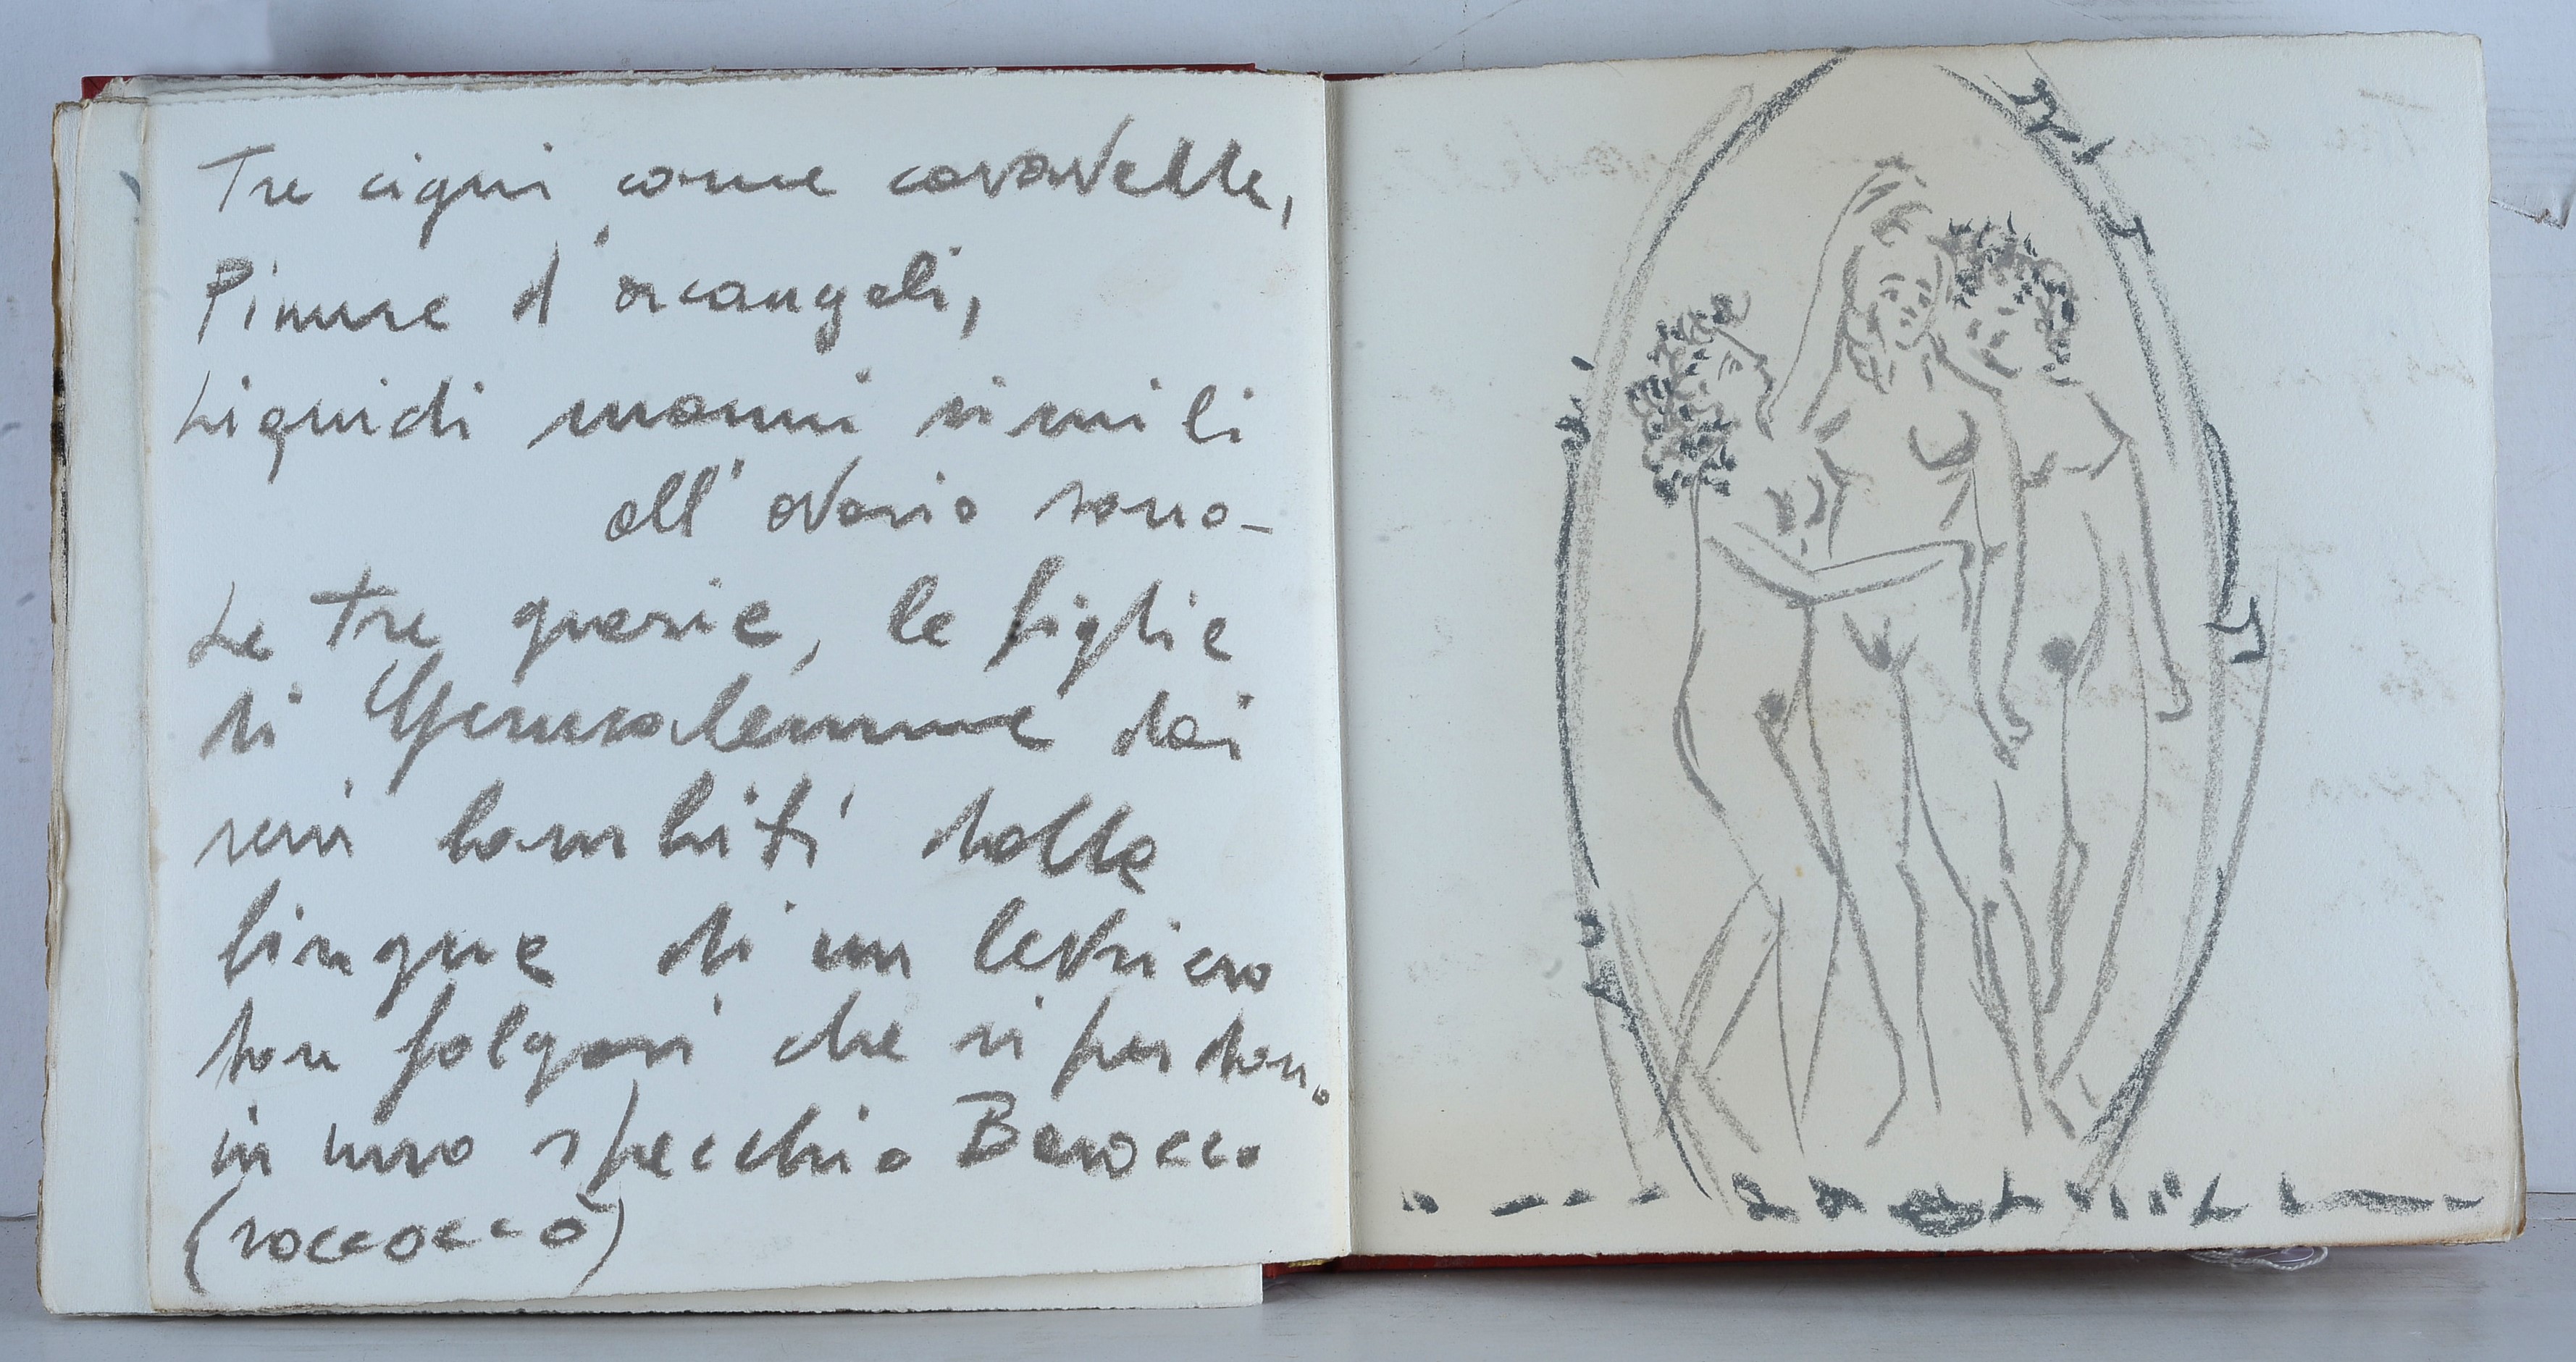 Tre cigni come caravelle,
Piume d'arcangeli,
Liquidi marmi simili
all' avorio sono-
Le tre grazie, le figlie
di Gerusalemme dai
seni lambiti dalla
lingue di un levriero
dan folgori che si perdono
in uno specchio Barocco
(roccoccò)